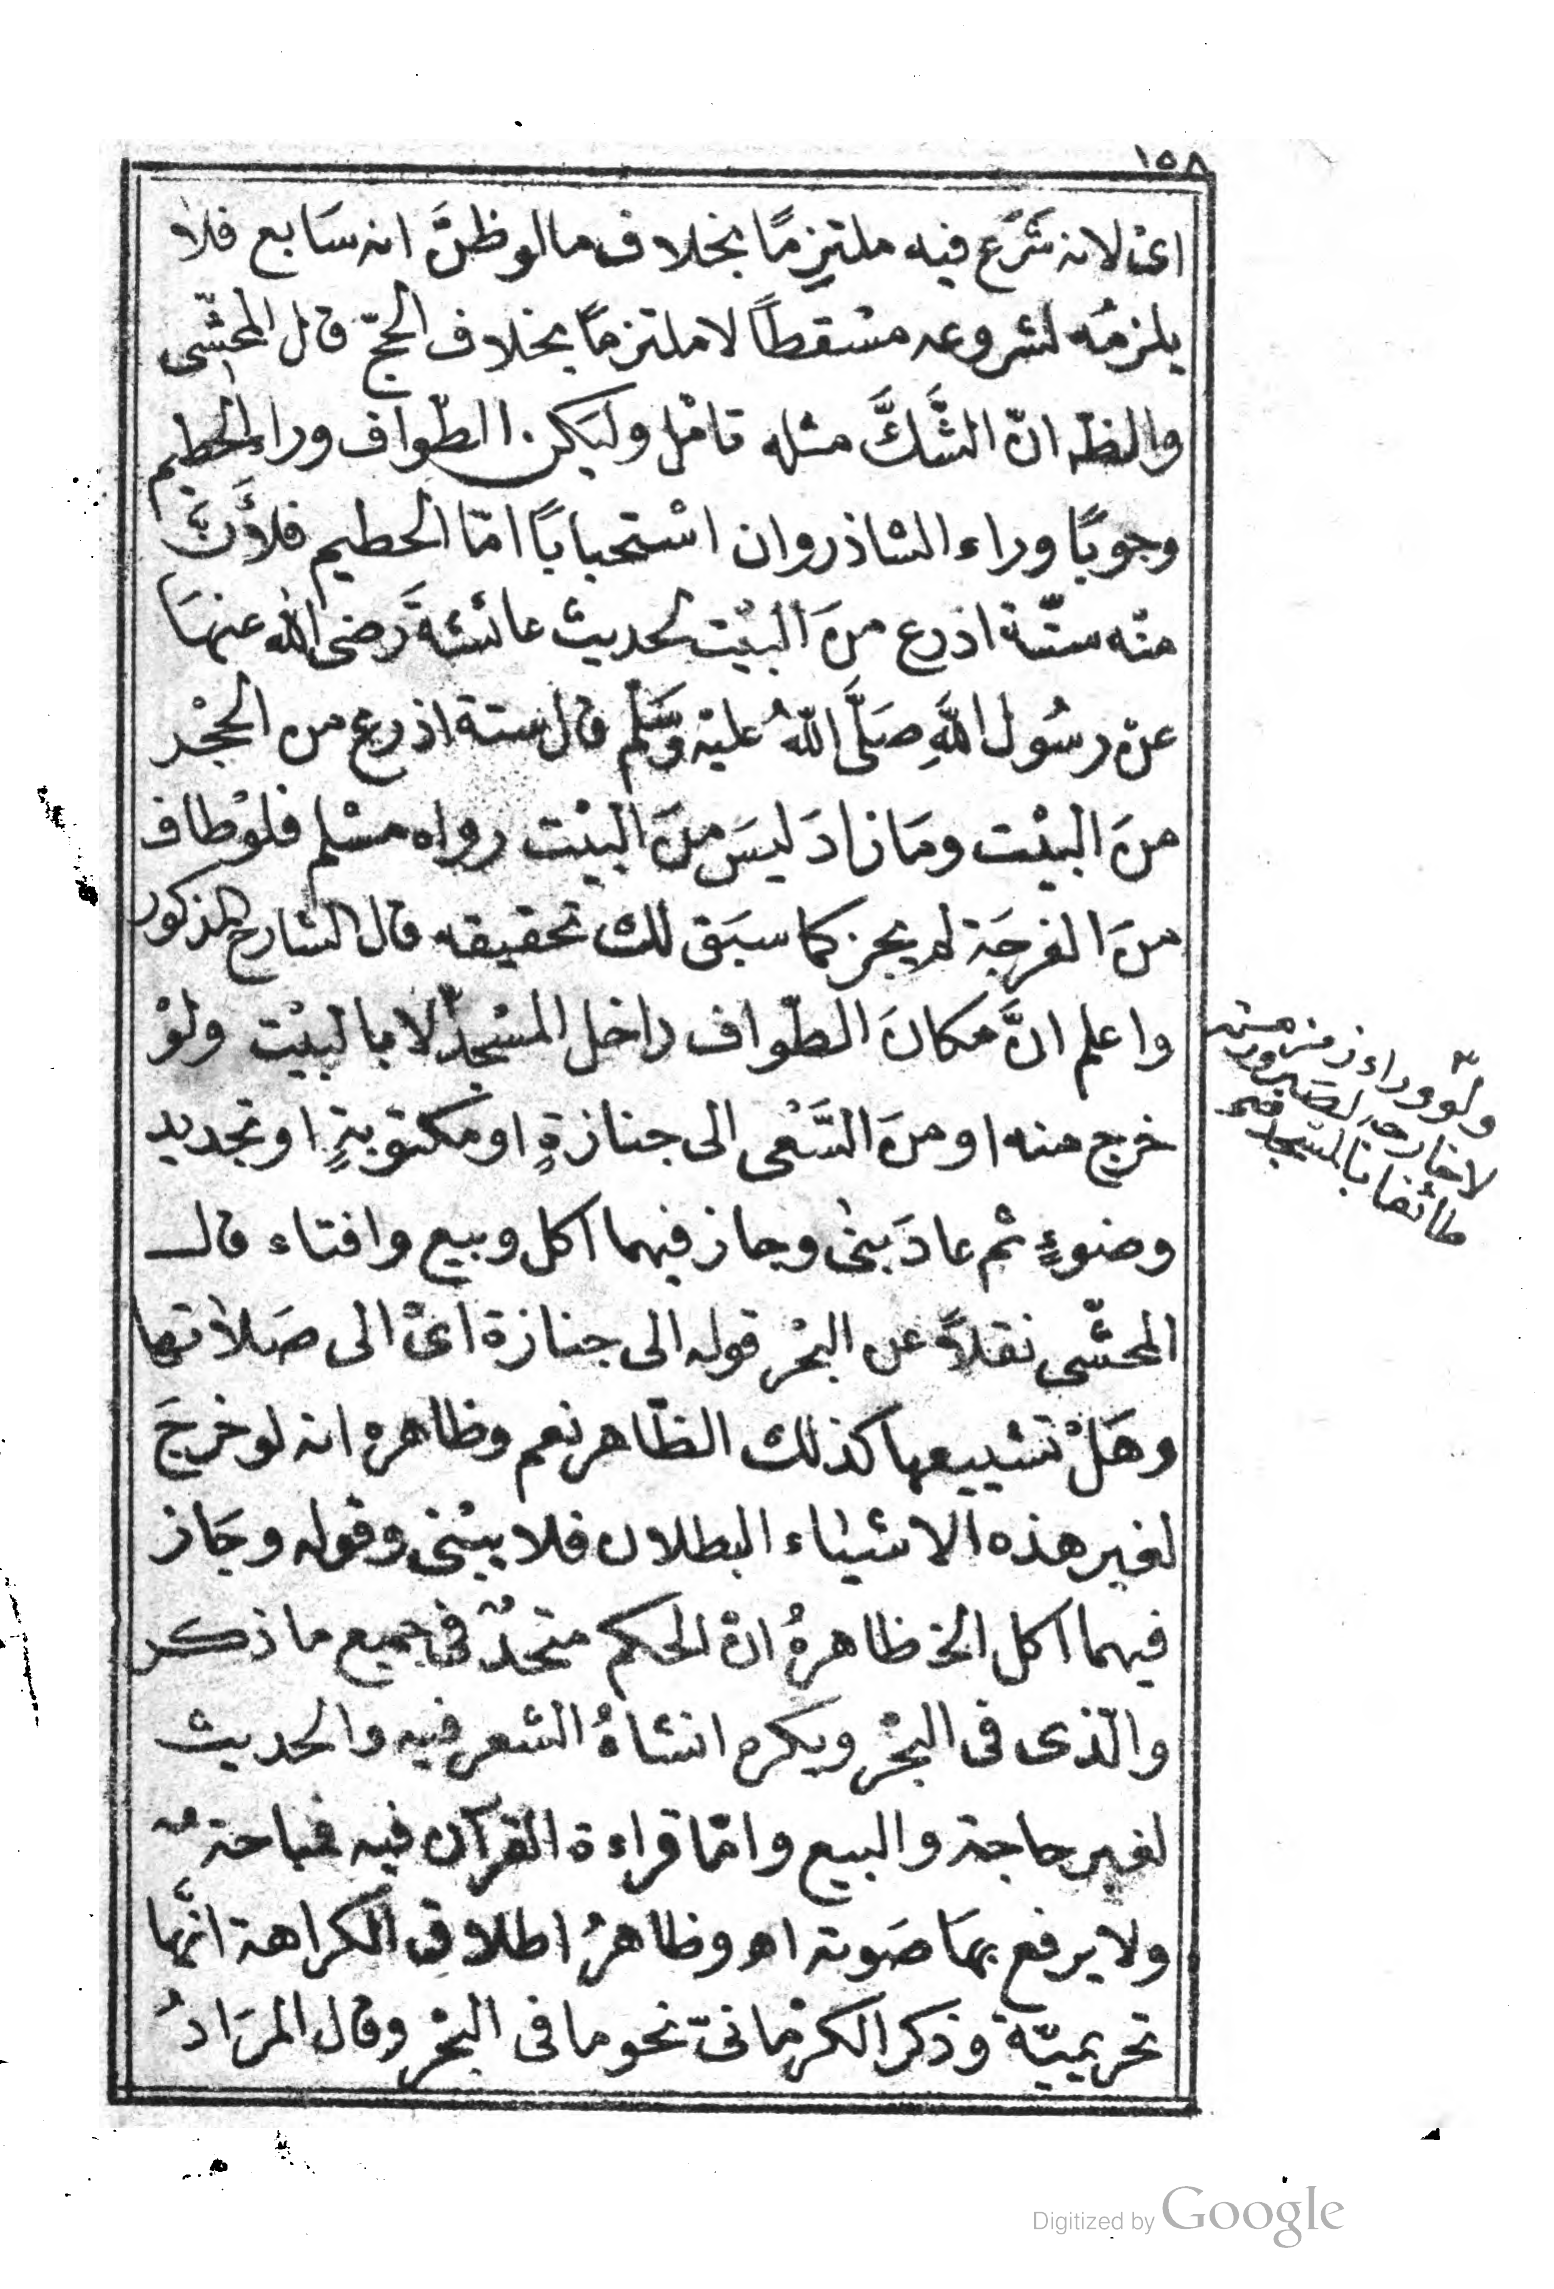 ١٥٨
اىْ لانه شَرَعَ فيه ملتزِمًا بخلاف مالو ظنَّ انه سَابع فلا
يلزمُه لشروعه مسْقطاً لا ملتزمًا بخلاف الحجّ قال المحشّى
والظّه انّ الشَّكَّ مثله تامّل وليَكن الطّواف وراء الحطيم
وجوبًا وراء الشاذروان اسْتحبابًا امّا الحطيم فلاَنَّ
منْه ستّة اذرع منَ البيْت لحديث عائشةَ رَضى الله عنهَا
عنْ رسُول اللهِ صَلَّى اللهُ عليْه وَسَلّم قال ستة اذرع من الحجْر
منَ البيْت ومَا زادَ ليسَ منَ البيْت رواه مسْلم فلوْ طاف
منَ الفرجَة لم يجز كما سبَق لك تحقيقه قال الشارح المذكور
واعلم انَّ مكانَ الطّواف داخل المسْجد لا بالبيْت ولوْ
خرج منه او منَ السَّعْى الى جنازةٍ او مكتوبةٍ او تجديد
وضوءٍ ثم عادَ بنى وجاز فيهما اكل وبيع وافتاء قال
المحشّى نقلاً عن البحْر قوله الى جنازة اىْ الى صَلاتها
وهَلْ تشييعها كذلك الظّاهر نعم وظاهره انه لو خرجَ
لغير هذه الاشياء البطلان فلا يبْنى وقوله وجَاز
فيهما اكل الخ ظاهرهُ انّ الحكم متحدٌ فى جميع ما ذكر
والّذى فى البحْر ويكره انشاءُ الشعر فيه والحديث
لغير حاجة والبيع وامّا قراءة القرآن فيه فمباحةٌ
ولا يرفع بهَا صَوته اهـ وظاهرُ اطلاق الكراهة انَّها
تحريميّة وذكر الكرمانىّ نحو ما فى البحْر وقال المرَادُ
ولو وراء زمزم
لا خارجه لصيرورته
طائفا بالمسجد
Digitized by Google